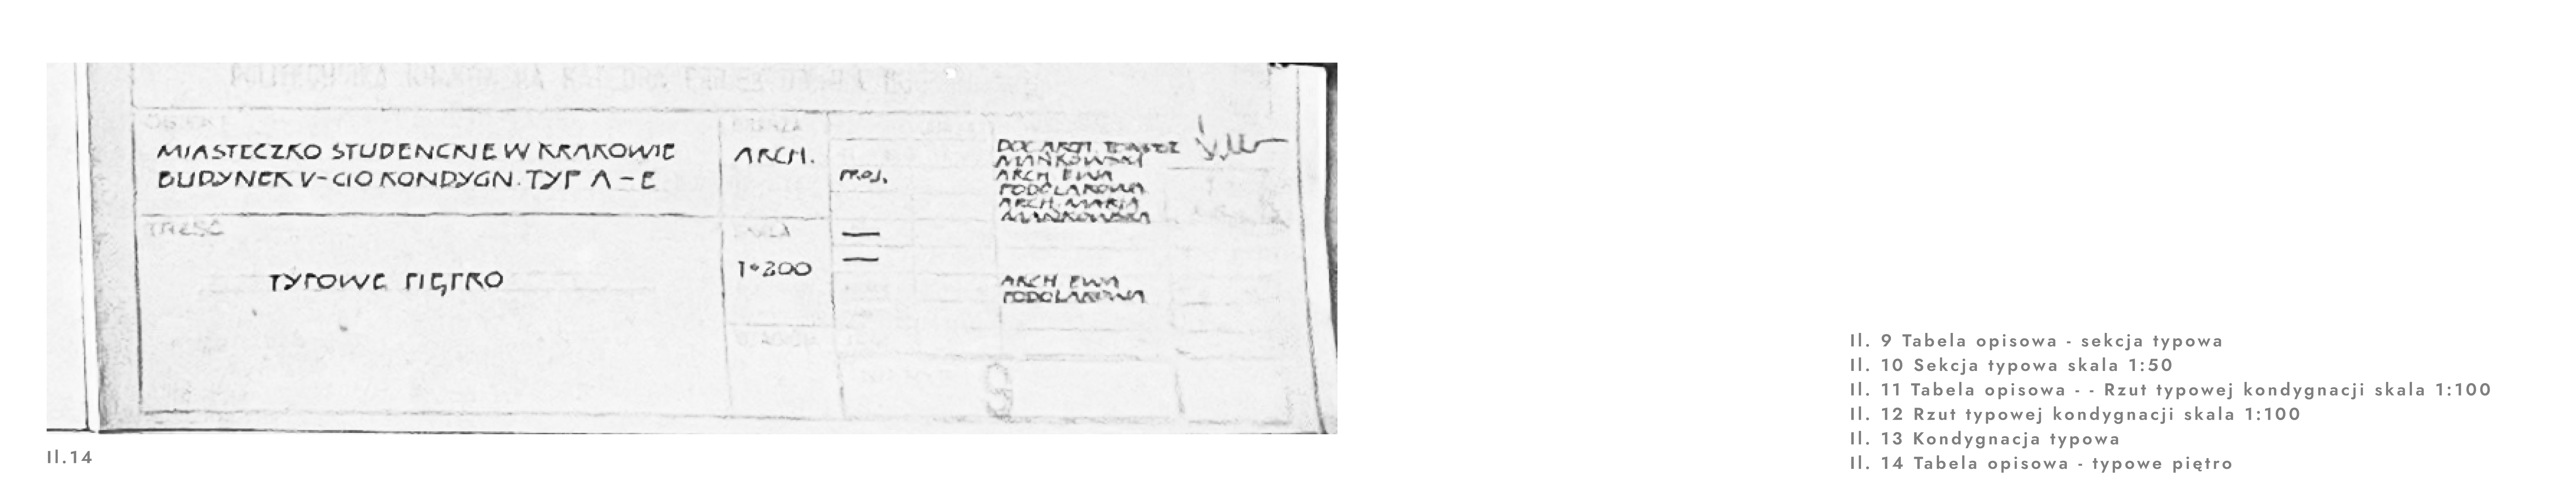 MIASTECZKO STUDENCKIE W KRAKOWIE
BUDYNEK V-CIO KONDYGN. TYP A-E
ARCH.
PROJ.
DOC ARCH. TOMASZ
MAŃKOWSKI
ARCH EWA
PODOLAKOWA
ARCH. MARIA
MAŃKOWSKA
TREŚĆ
TYPOWE PIĘTRO
1:200
ARCH EWA
PODOLAKOWA
9
Il.14
Il. 9 Tabela opisowa - sekcja typowa
Il. 10 Sekcja typowa skala 1:50
Il. 11 Tabela opisowa - - Rzut typowej kondygnacji skala 1:100
Il. 12 Rzut typowej kondygnacji skala 1:100
Il. 13 Kondygnacja typowa
Il. 14 Tabela opisowa - typowe piętro